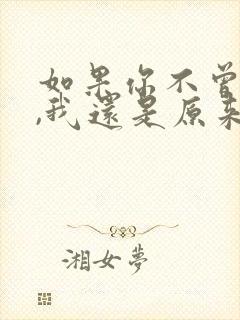 如果你不曾
,我還是原來
湘女夢